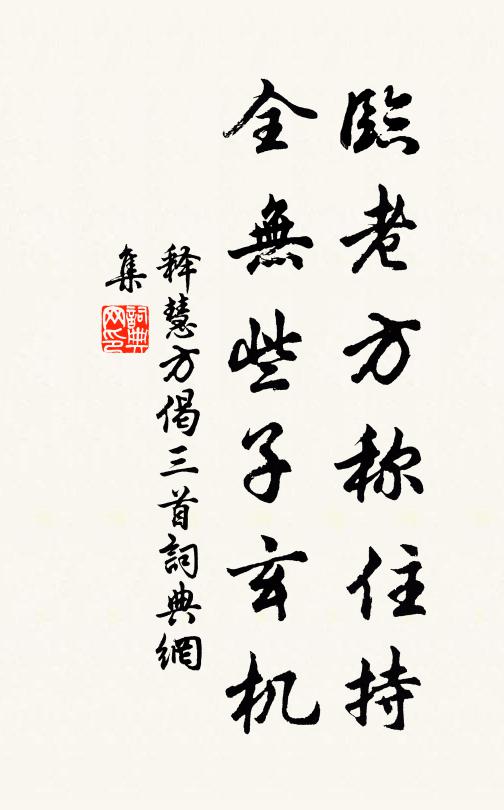 臨老方称住持
全無些子玄机
释慧方偈三首詞典網
集
詞典
网印